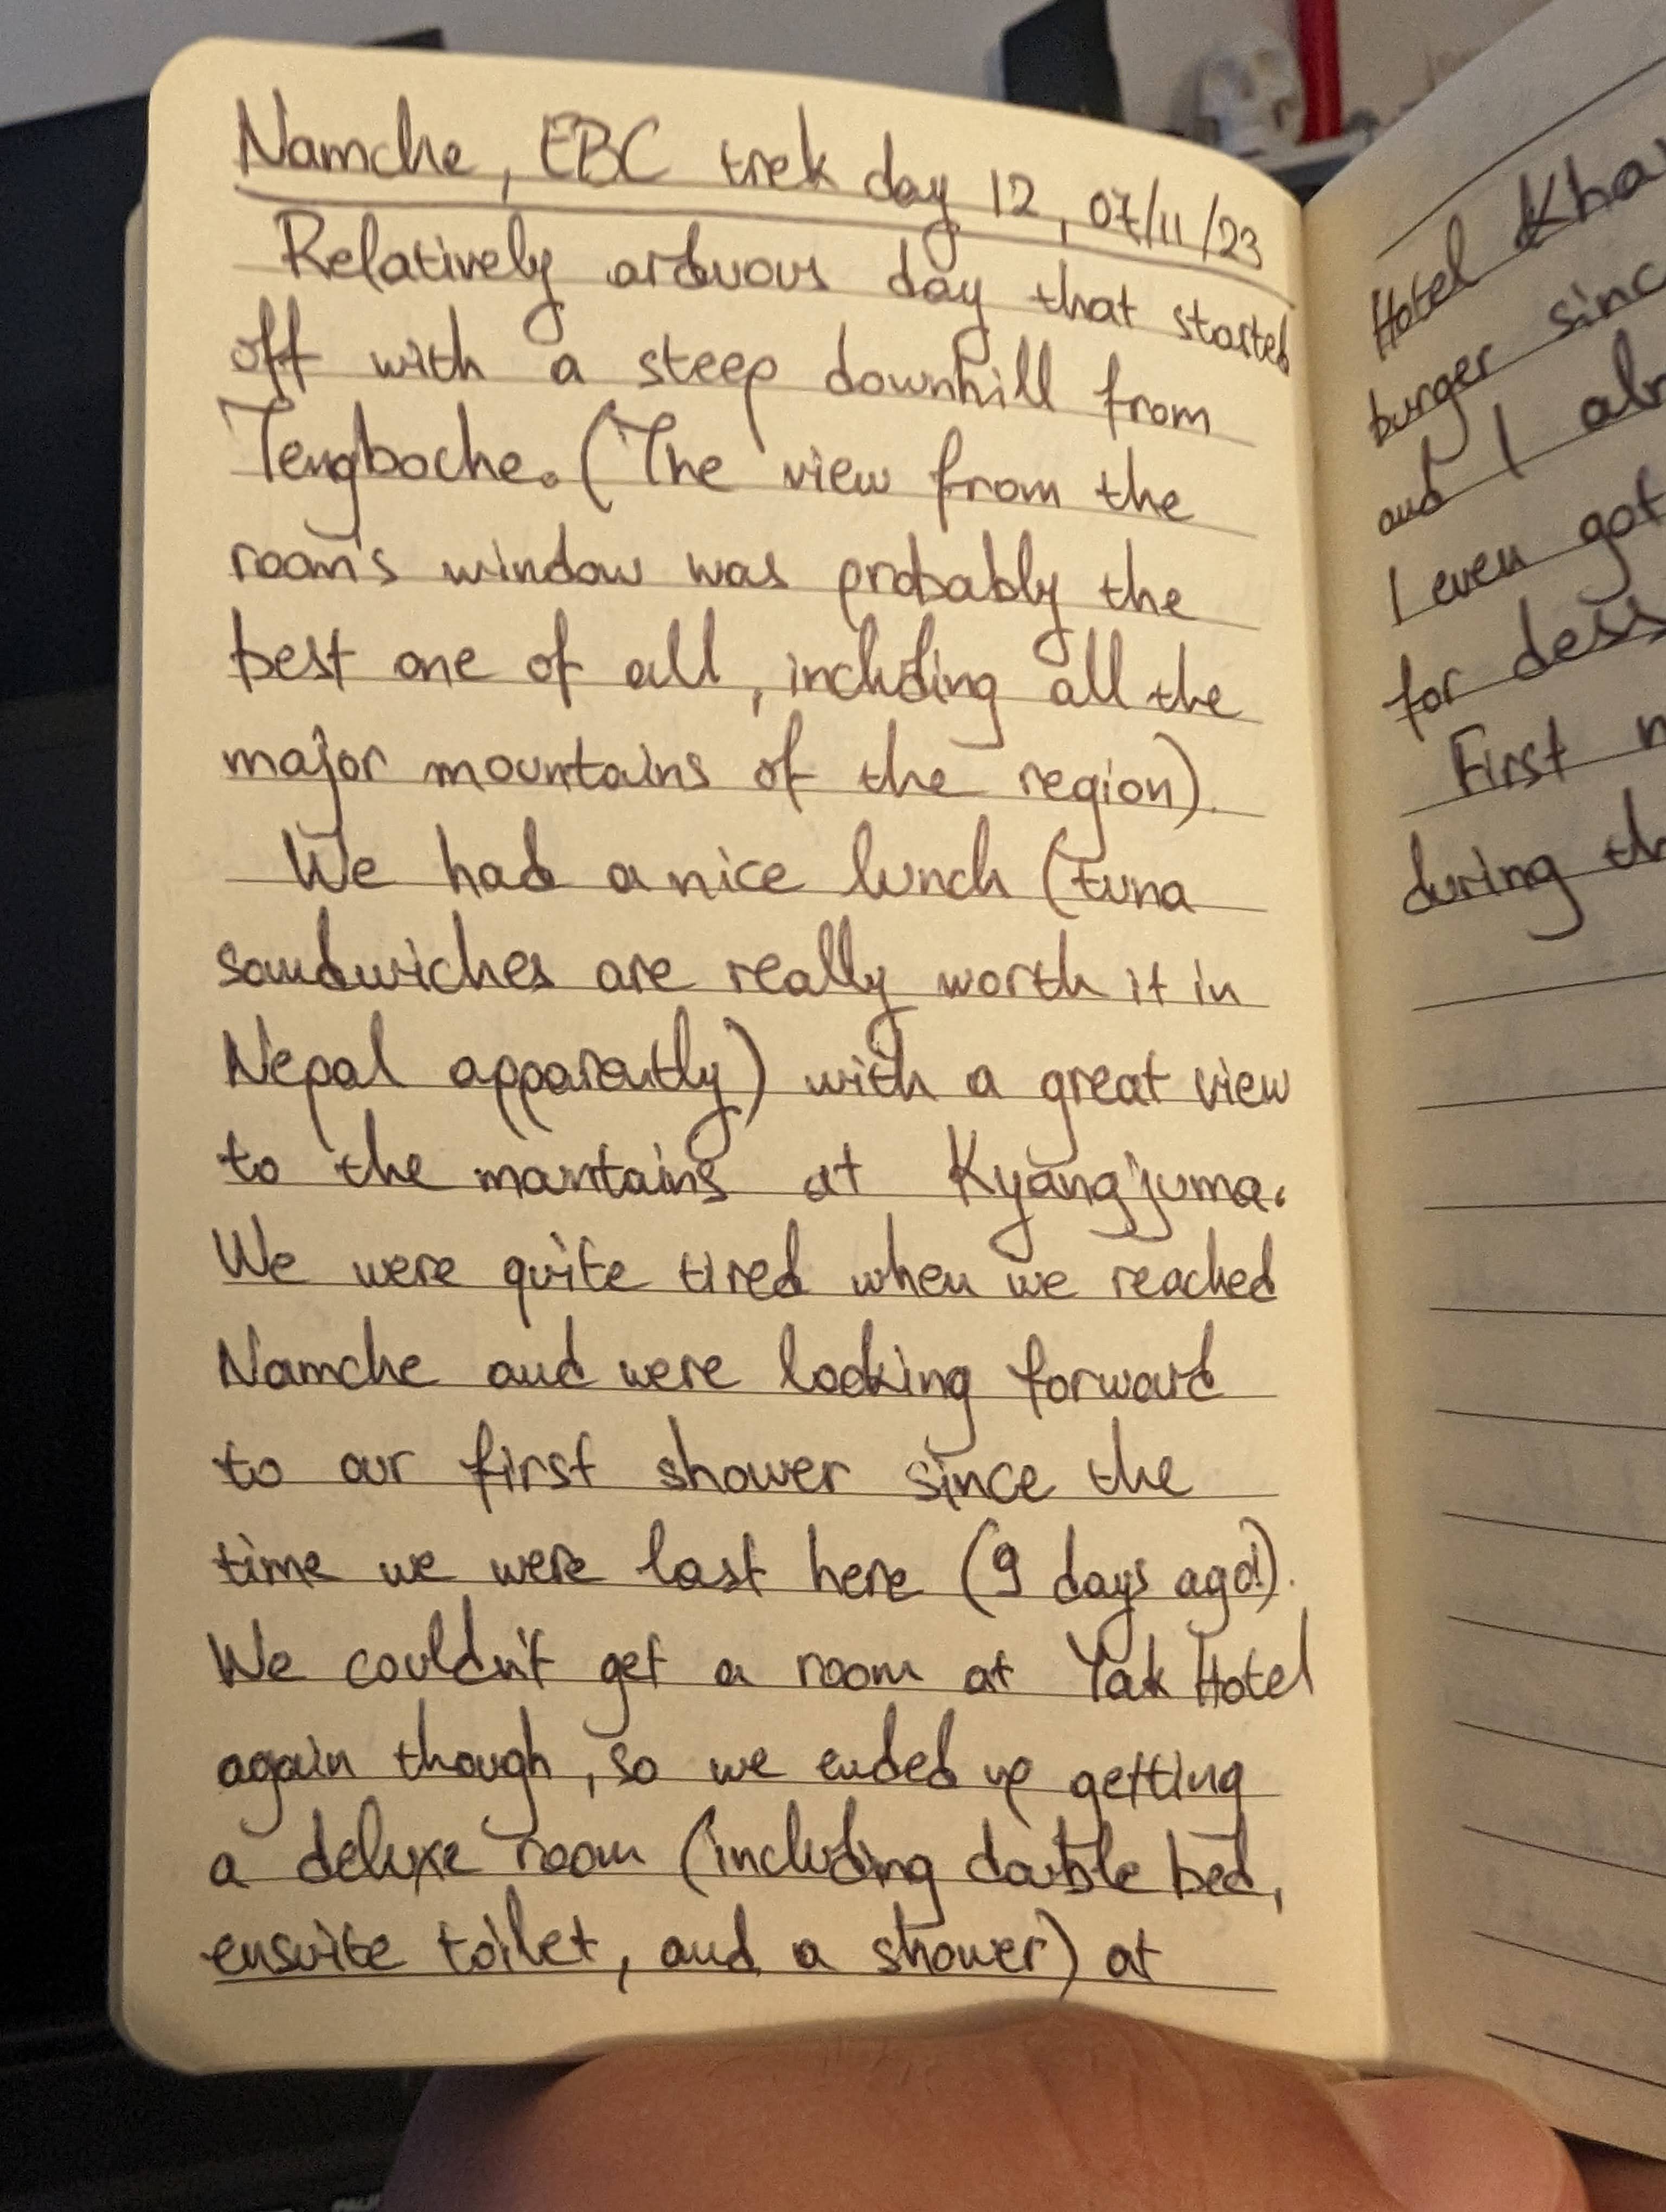 Namche, EBC trek day 12, 07/11/23
Relatively arduous day that started
off with a steep downhill from
Tengboche. (The view from the
room's window was probably the
best one of all, including all the
major mountains of the region).
We had a nice lunch (tuna
sandwiches are really worth it in
Nepal apparently) with a great view
to the mantains at Kyangjuma.
We were quite tired when we reached
Namche and were looking forward
to our first shower since the
time we were last here (9 days ago!).
We couldn't get a room at Yak Hotel
again though, so we ended up getting
a deluxe room (including double bed,
ensuite toilet, and a shower) at
Hotel
burger
and I
I even got
for
First
during